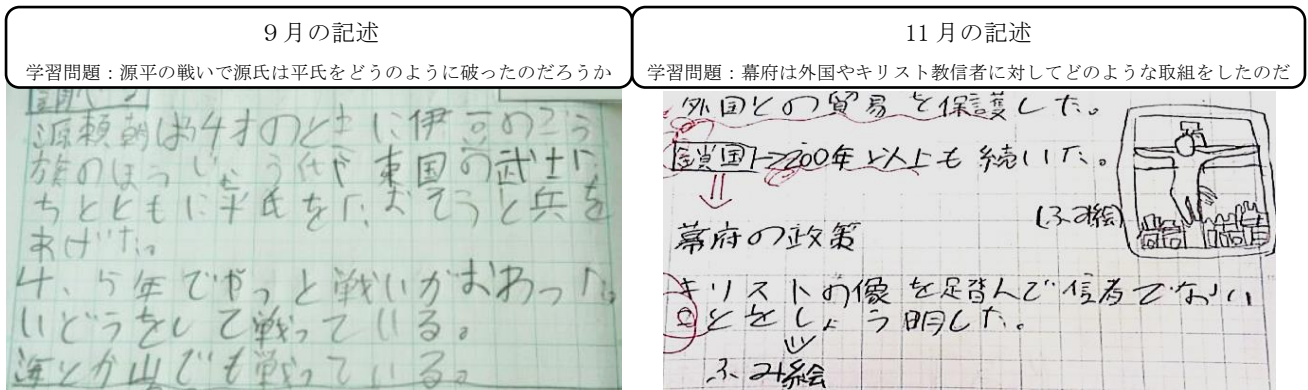 9月の記述
学習問題：源平の戦いで源氏は平氏をどうのように破ったのだろうか
源頼朝は4才のときに伊豆のごう
族のほうじょう氏や東国の武士た
ちとともに平氏をたおそうと兵を
あげた。
4、5年でやっと戦いがおわった。
いどうをして戦っている。
海とか山でも戦っている。
11月の記述
学習問題：幕府は外国やキリスト教信者に対してどのような取組をしたのだ
外国との貿易を保護した。
鎖国→200年以上も続いた。
(ふみ絵)
幕府の政策
キリストの像を足踏んで信者でない
ことをしょう明した。
ふみ絵